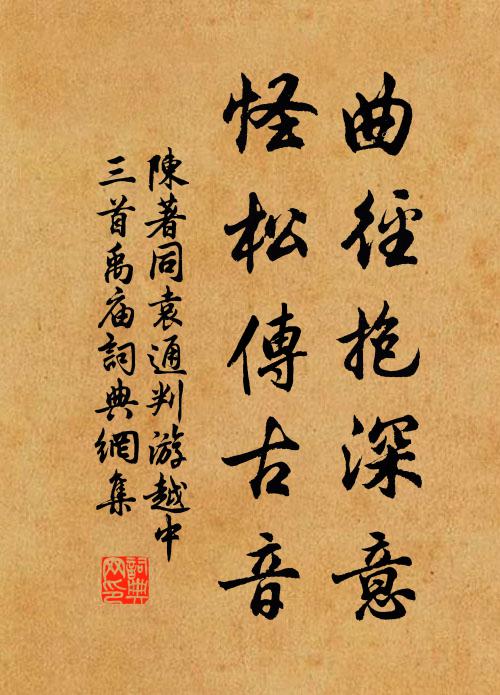 曲徑抱深意
怪松傳古音
陳著同袁通判游越中
三首禹庙詞典網集
詞典網印